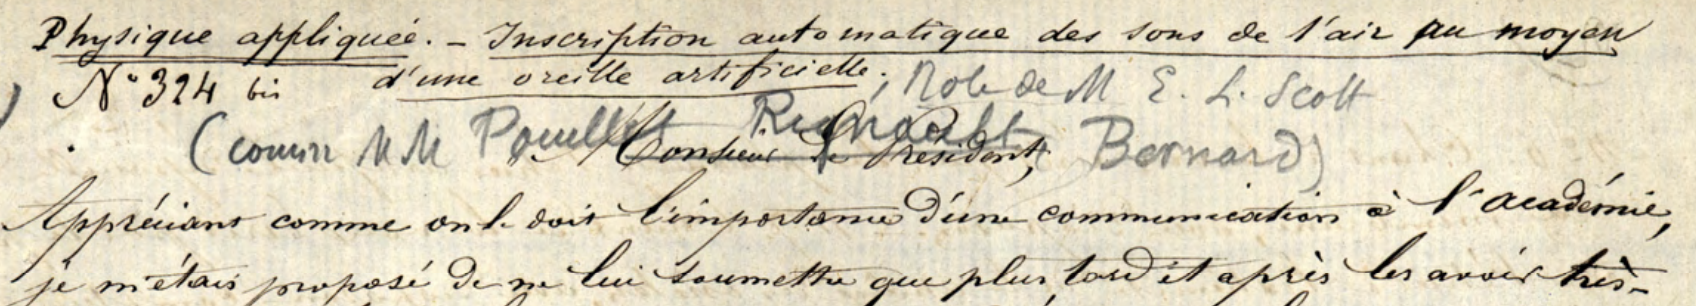 Physique appliquée. — Inscription automatique des sons de l'air au moyen
N° 324 bis d'une oreille artificielle; Note de M E. L. Scott
(comm MM Pouillet Regnault Bernard)
Monsieur le Président,
Appréciant comme on le doit l'importance d'une communication à l'académie,
je m'étais proposé de ne lui soumettre que plus tard et après les avoir très-